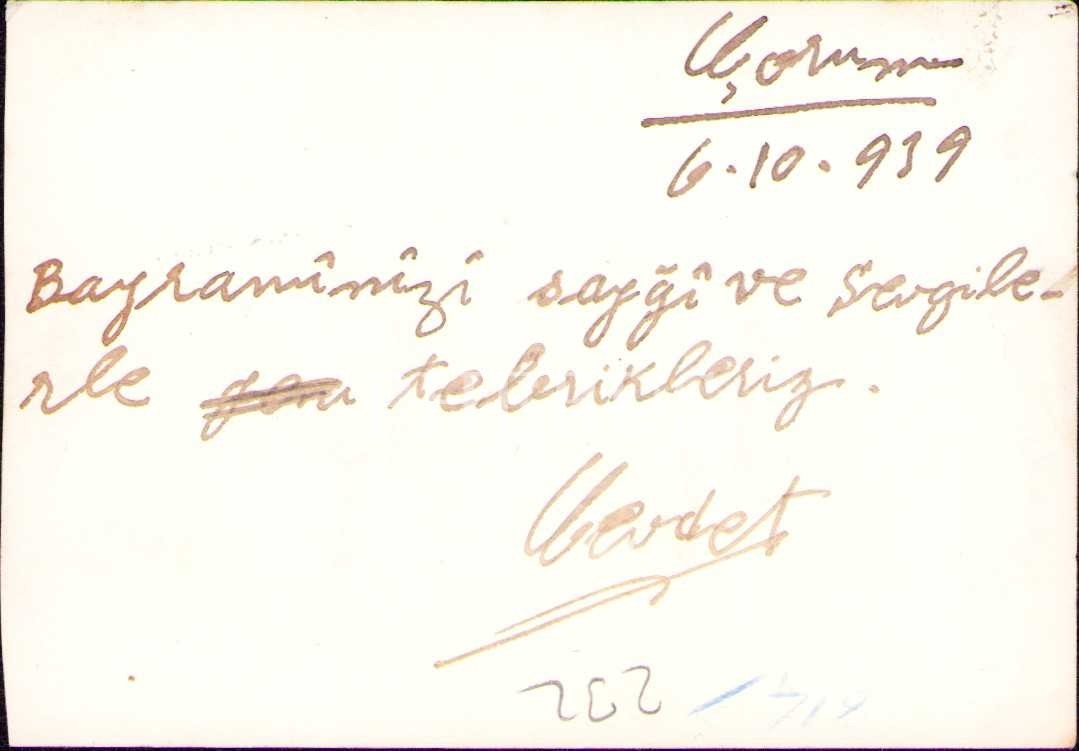 Çorum
6.10.939
Bayramînîzî sayğî ve Sevgile-
rle tebrikleriz.
Cevdet
232